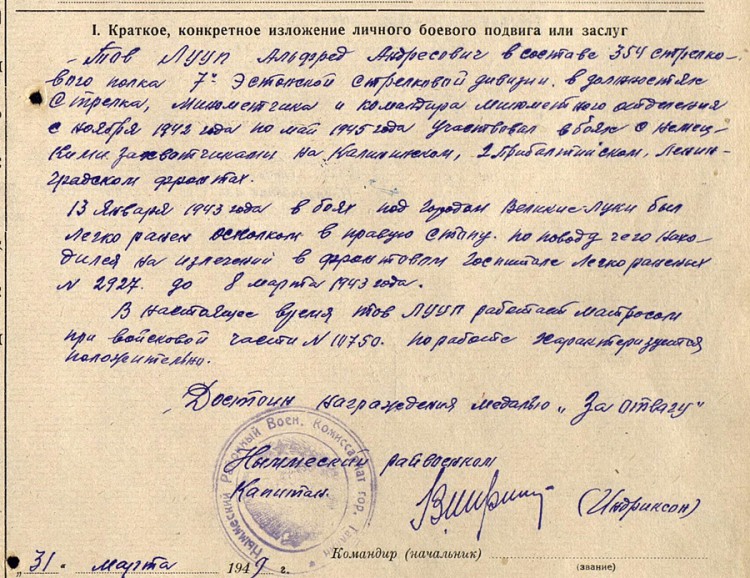 I. Краткое, конкретное изложение личного боевого подвига или заслуг
Тов ЛУУП Альфред Андресович в составе 354 стрелко-
вого полка 7й Эстонской Стрелковой дивизии. в должностях
Стрелка, минометчика и командира минометного отделения
с ноября 1942 года по май 1945 года участвовал в боях с немец-
кими захватчиками на Калининском, 2 Прибалтийском, Ленин-
градском фронтах.
13 Января 1943 года в боях под городом Великие-Луки был
легко ранен осколком в правую стопу. по поводу чего нахо-
дился на излечении в фронтовом госпитале легкораненых
N 2927. до 8 марта 1943 года.
В настоящее время тов ЛУУП работает матросом
при войсковой части N 10750. по работе характеризуется
положительно.
Достоин награждения медалью „За отвагу"
Ныммеский райвоенком
Капитан (Индриксон)
Нымместкий Районный Воен. Комиссариат гор.
Командир (начальник)
(звание)
„31" марта 1947 г.